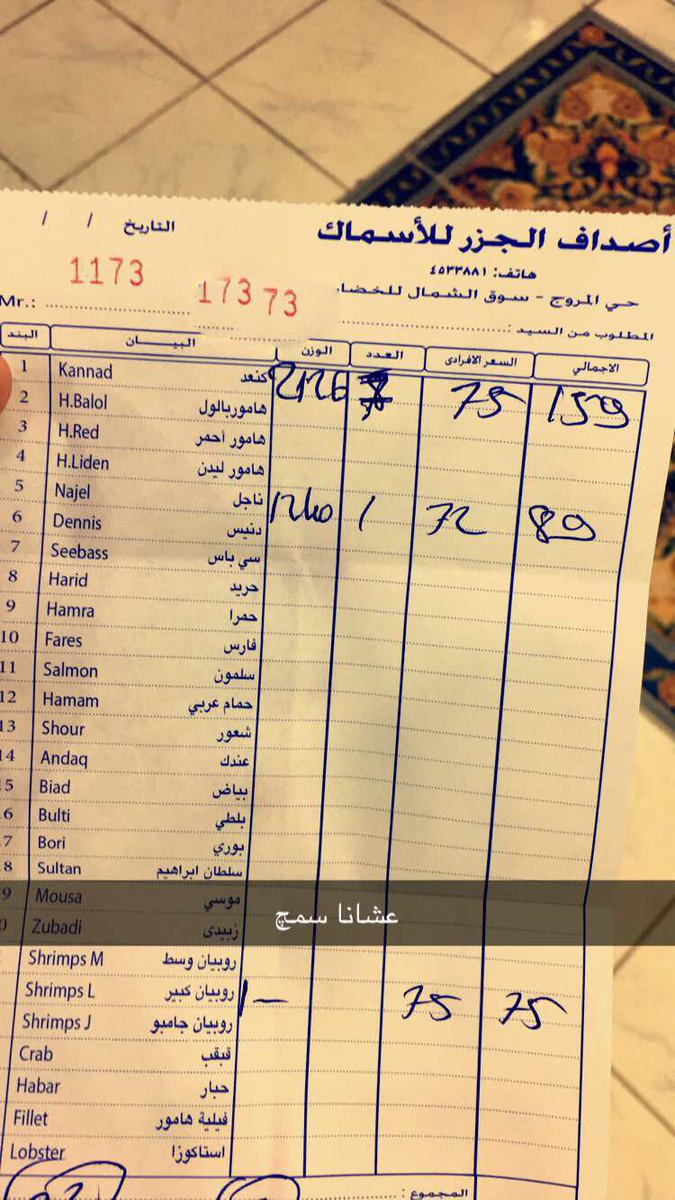 أصداف الجزر للأسماك
التاريخ / /
هاتف: ٤٥٣٣٨٨١
1173 173 73
حي المروج - سوق الشمال للخضار
Mr.:
المطلوب من السيد:
البند البيـــان الوزن العدد السعر الافرادى الاجمالي
1 Kannad كنعد 2126 75 159
2 H.Balol هامور بالول
3 H.Red هامور أحمر
4 H.Liden هامور ليدن
5 Najel ناجل
6 Dennis دنيس 1240 1 72 89
7 Seebass سي باس
8 Harid حريد
9 Hamra حمرا
10 Fares فارس
11 Salmon سلمون
12 Hamam حمام عربي
13 Shour شعور
14 Andaq عندك
15 Biad بياض
6 Bulti بلطي
7 Bori بوري
8 Sultan سلطان ابراهيم
9 Mousa موسي
عشانا سمچ
0 Zubadi زبيدى
Shrimps M روبيان وسط
Shrimps L روبيان كبير 1 - 75 75
Shrimps J روبيان جامبو
Crab قبقب
Habar حبار
Fillet فيلية هامور
Lobster استاكوزا
المجموع :